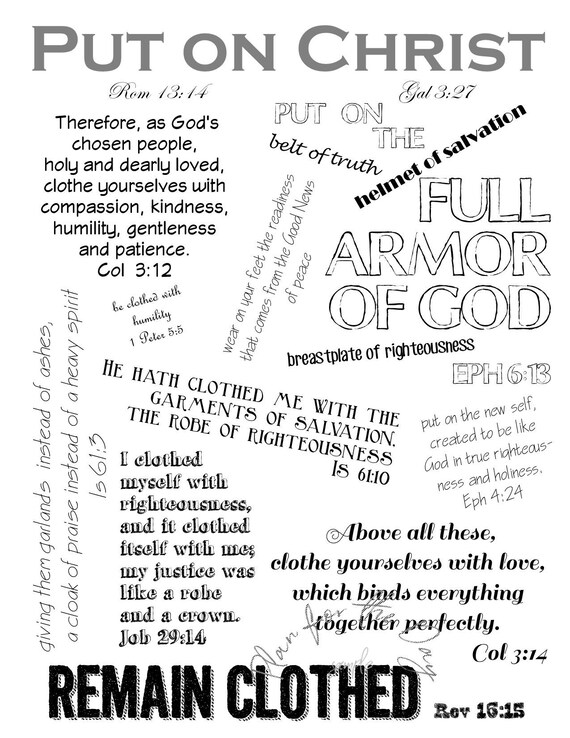 PUT ON CHRIST
Rom 13:14
Gal 3:27
Therefore, as God's
chosen people,
holy and dearly loved,
clothe yourselves with
compassion, kindness,
humility, gentleness
and patience.
Col 3:12
PUT ON
THE
belt of truth
helmet of salvation
FULL
ARMOR
OF GOD
wear on your feet the readiness
that comes from the Good News
of peace
be clothed with
humility
1 Peter 5:5
breastplate of righteousness
EPH 6:13
giving them garlands instead of ashes,
a cloak of praise instead of a heavy spirit
Is 61:3
HE HATH CLOTHED ME WITH THE
GARMENTS OF SALVATION,
THE ROBE OF RIGHTEOUSNESS
IS 61:10
put on the new self,
created to be like
God in true righteous-
ness and holiness.
Eph 4:24
I clothed
myself with
righteousness,
and it clothed
itself with me;
my justice was
like a robe
and a crown.
Job 29:14
Above all these,
clothe yourselves with love,
which binds everything
together perfectly.
Col 3:14
Plan for the Day
REMAIN CLOTHED
Rev 16:15